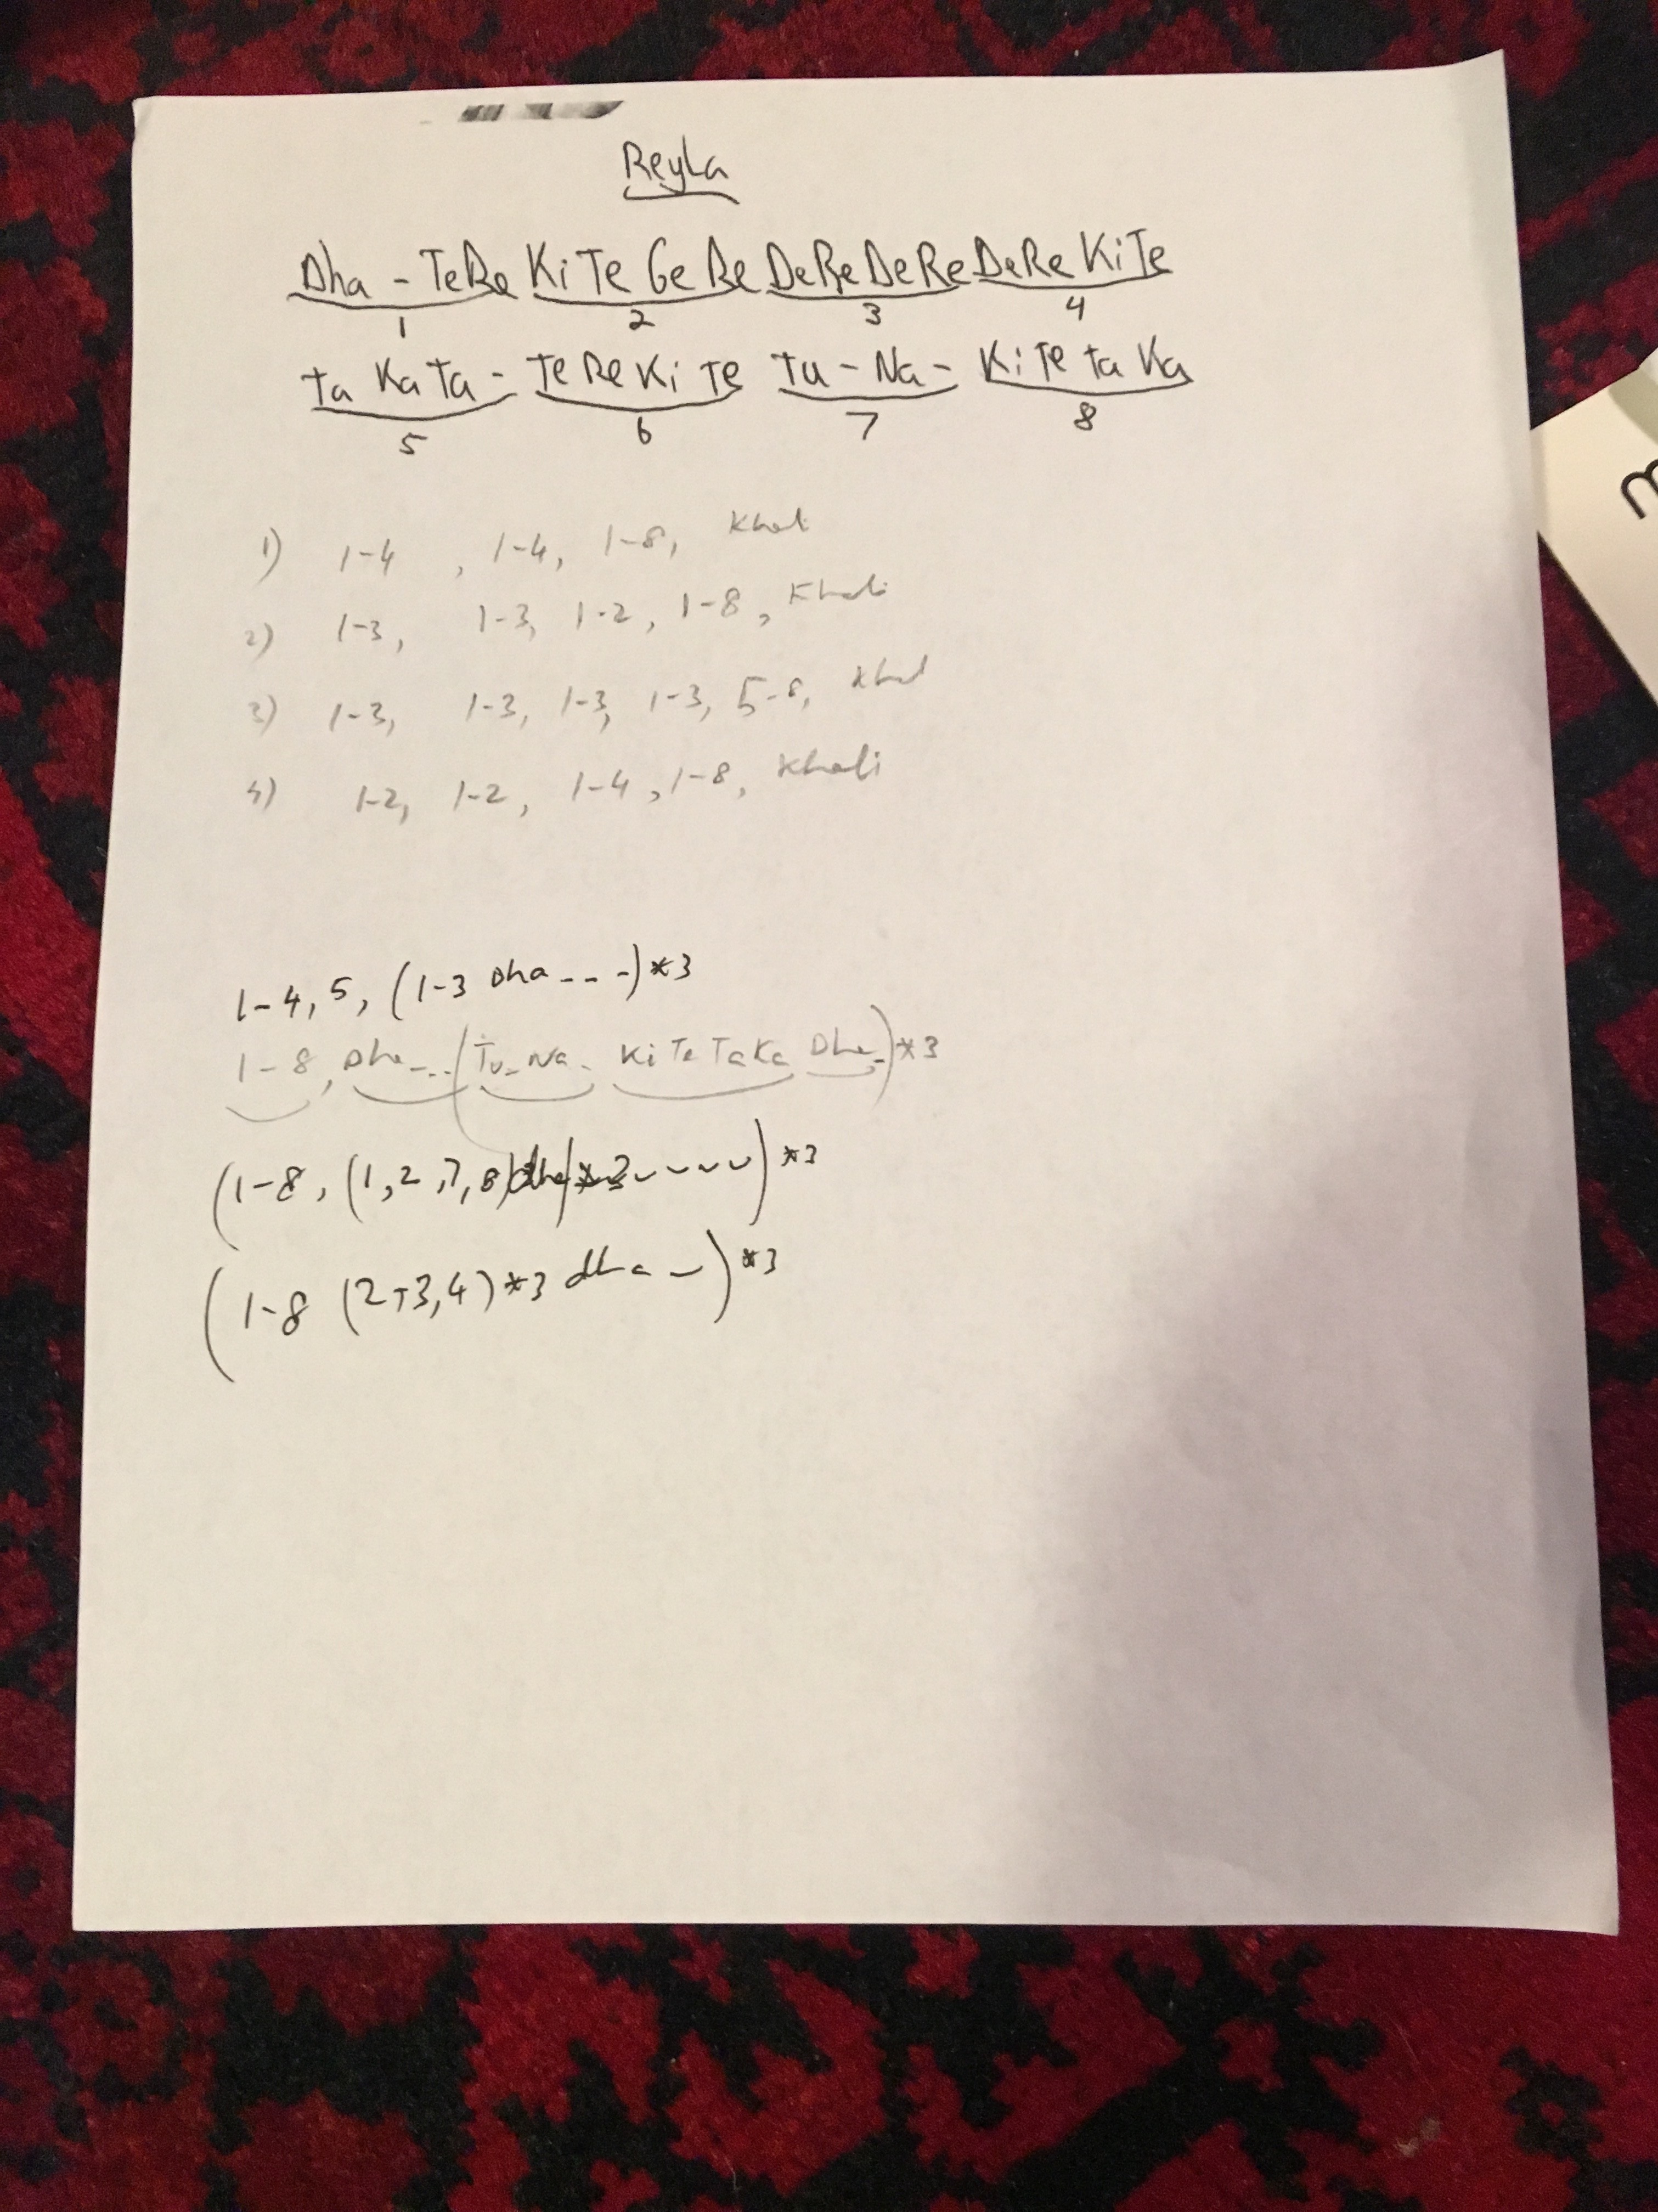 Reyla
Dha - TeRe KiTe GeRe DeReDeRe DeRe KiTe
1 2 3 4
ta Ka Ta - TeReKiTe Tu - Na - KiTe ta Ka
5 6 7 8
1) 1-4 , 1-4, 1-8, Khali
2) 1-3, 1-3, 1-2, 1-8, Khali
3) 1-3, 1-3, 1-3, 1-3, 5-8, Khali
4) 1-2, 1-2, 1-4, 1-8, Khali
1-4, 5, (1-3 Dha - - -)*3
1-8, Dha - - - (Tu - Na - KiTeTaKa Dha -)*3
(1-8, (1, 2, 7, 8) )*3
(1-8 (2, 3, 4)*3 dha -)*3
m